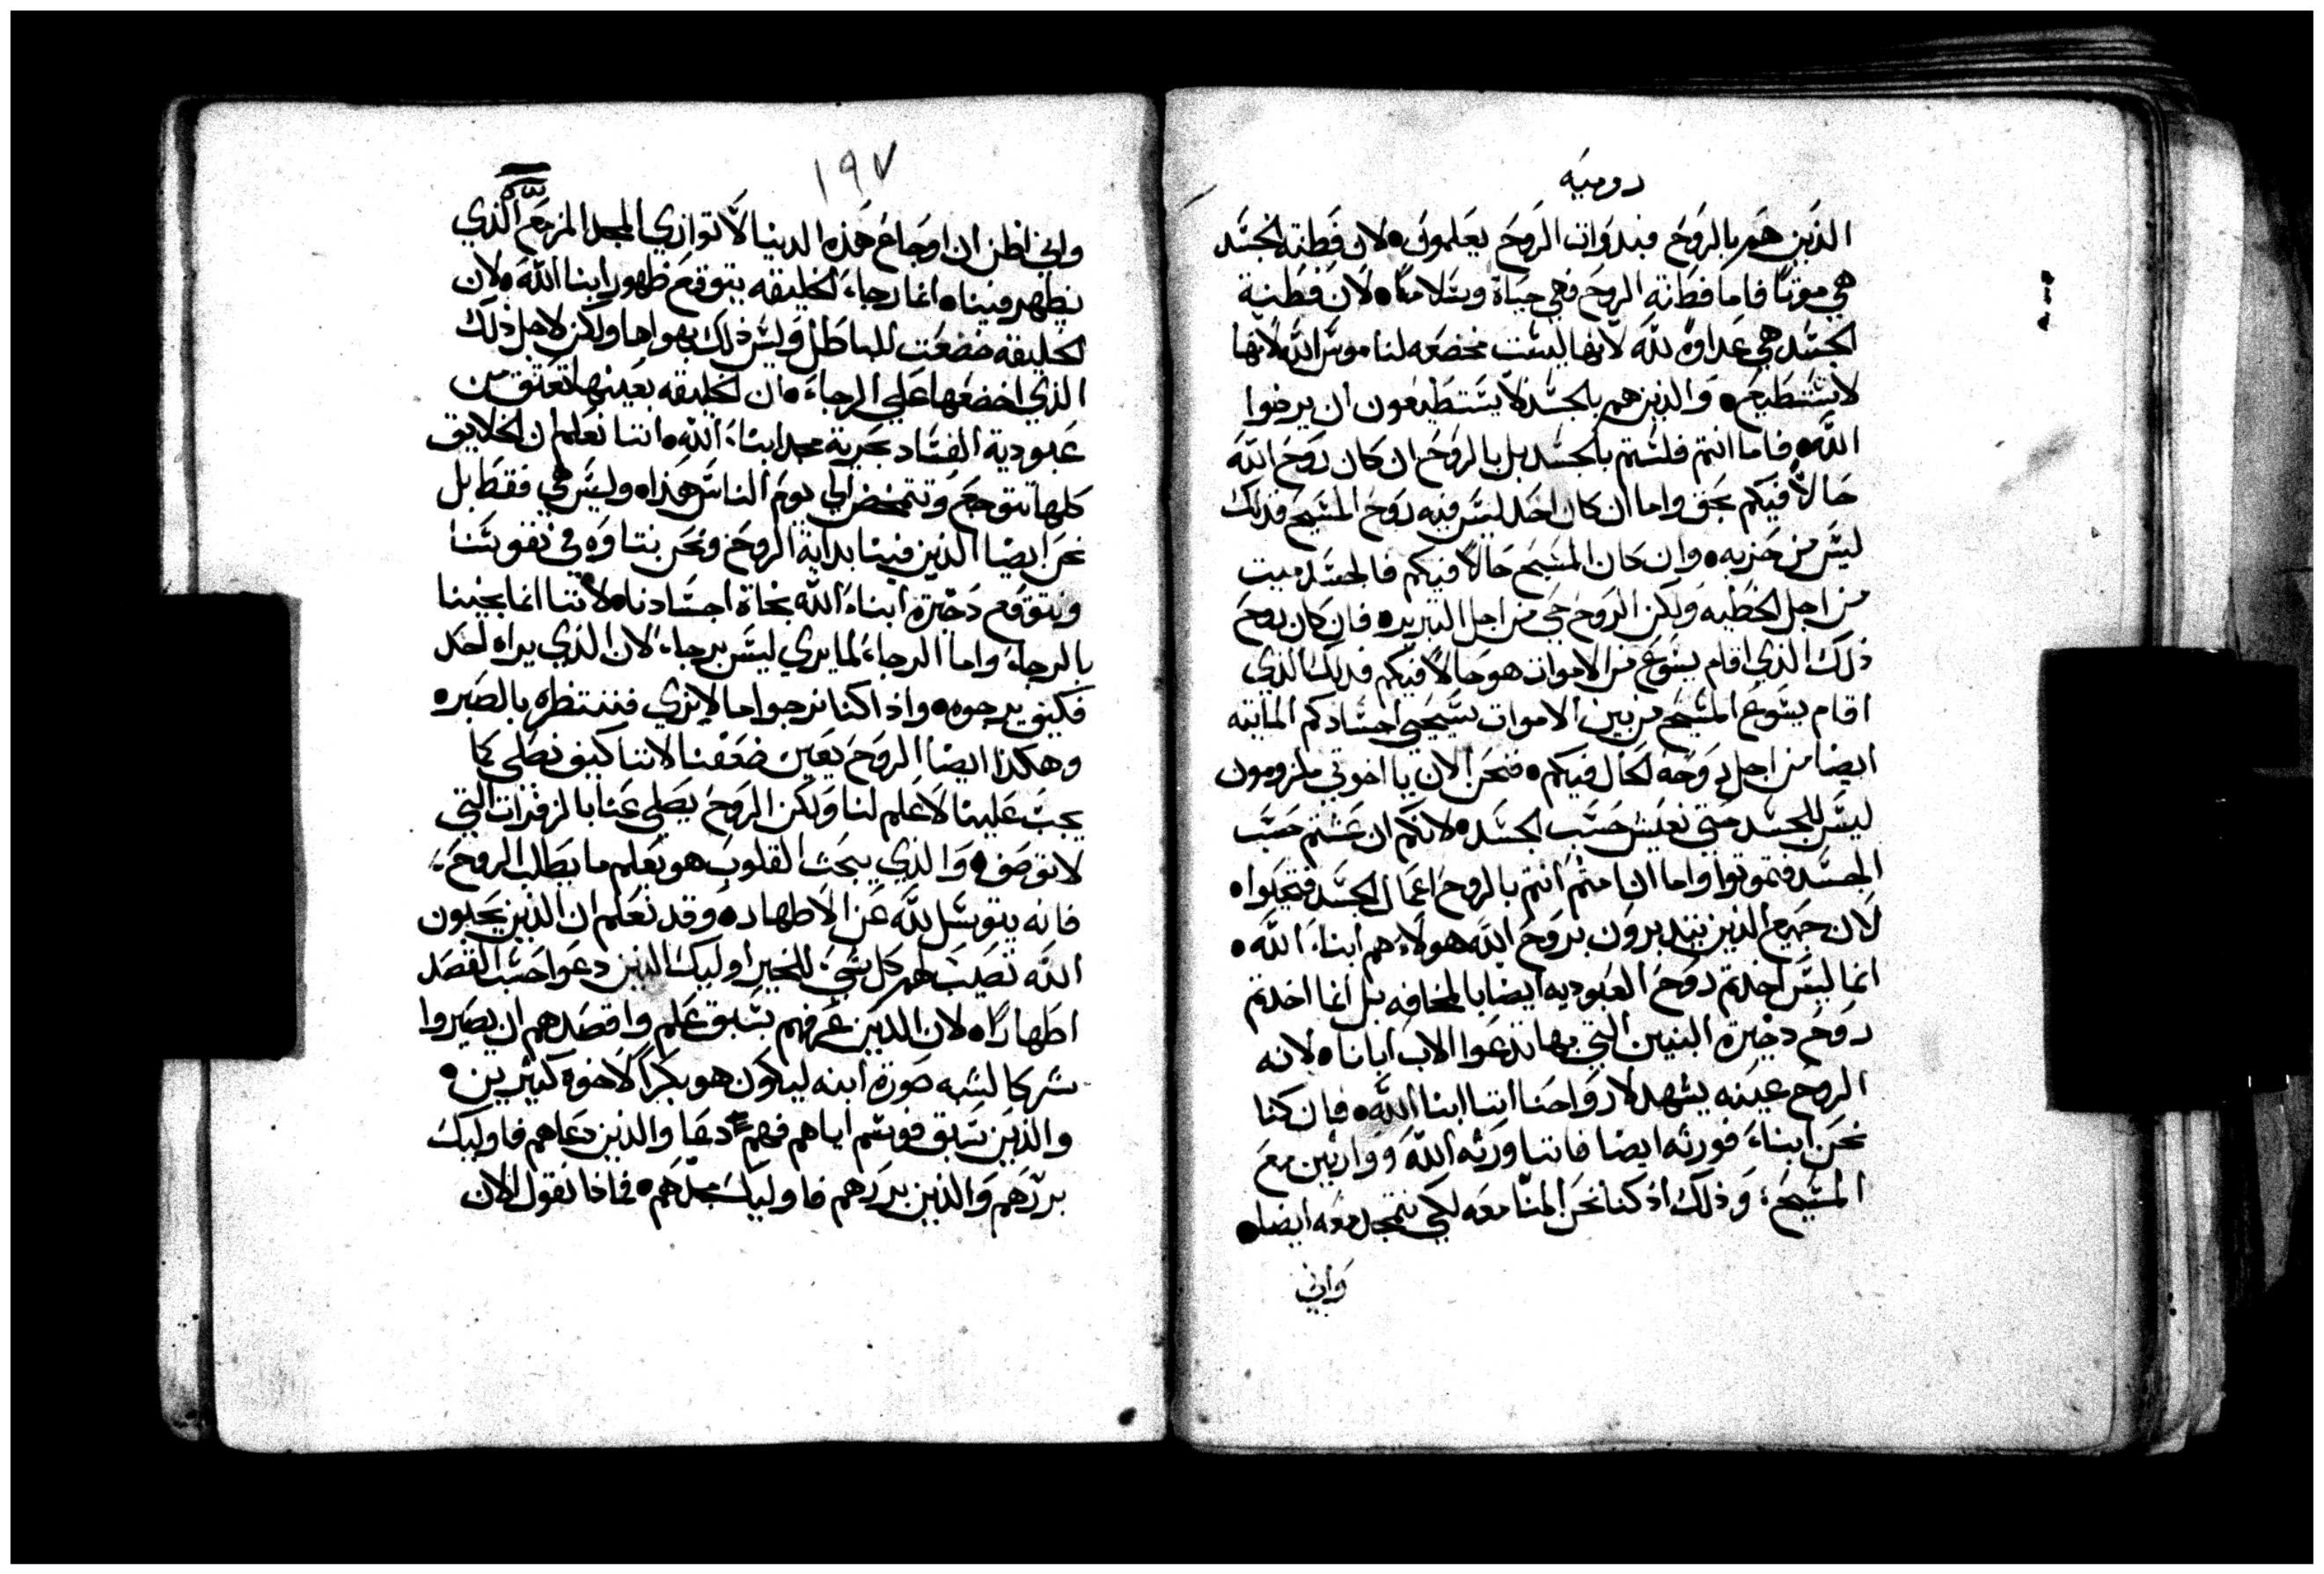 رومية
الذين هم بالروح فبذوات الروح يعلمون • لان فطنة الجسد
هي موتًا فاما فطانة الروح فهي حياة وسلامًا • لان فطنة
الجسد هي عداوة لله لانها ليست مخضعه لناموس الله لانها
لا تستطيع • والذين هم بالجسد لا يستطيعون ان يرضوا
الله • فاما انتم فلستم بالجسد بل بالروح ان كان روح الله
حالاً فيكم بحق واما ان كان احد ليس فيه روح المسيح فذلك
ليس من حزبه • وان كان المسيح حالاً فيكم فالجسد ميت
من اجل الخطيه ولكن الروح حي من اجل التبرير • فان كان روح
ذلك الذي اقام يسوع من الاموات هو حالاً فيكم فذلك الذي
اقام يسوع المسيح من بين الاموات سيحيي اجسادكم المايته
ايضا من اجل روحه الحال فيكم • فنحن الان يا اخوتي ملزومون
ليس للجسد حتى نعيش حسب الجسد • لانكم ان عشتم حسب
الجسد فتموتوا واما ان امتم انتم بالروح اعمال الجسد فتحيوا •
لان جميع الذين يتدبرون بروح الله هولاء هم ابناء الله •
انما ليس اخذتم روح العبوديه ايضا بالمخافه بل انما اخذتم
روح ذخيرة البنين التي بها ندعوا الاب ابانا • لانه
الروح عينه يشهد لارواحنا اننا ابنا الله • فان كنا
نحن ابناء فورثه ايضا فاننا ورثه الله ووارثين مع
المسيح، وذلك اذ كنا نحن المنا معه لكي نتمجد معه ايضا •
واني
١٩٧
واني اظن ان اوجاع هذه الدنيا لا توازي المجد المزمع الذي
يظهر فينا • انما رجاء الخليقه يتوقع ظهور ابنا الله • لان
الخليقه خضعت للباطل وليس ذلك بهواها ولكن لاجل ذلك
الذي اخضعها على الرجاء • ان الخليقه بعينها تعتق من
عبودية الفساد بحرية مجد ابناء الله • اننا نعلم ان الخلايق
كلها تتوجع وتتمخض الي يوم الناس هذا • وليس هي فقط بل
نحن ايضا الذين فينا بداية الروح ونحن نتاوه في نفوسنا
ونتوقع ذخيرة ابناء الله نجاة اجسادنا • لاننا انما نجينا
بالرجاء واما الرجاء لما يري ليس برجاء، لان الذي يراه احد
فكيف يرجوه • واذا كنا نرجوا ما لا نري فننتظره بالصبر •
وهكذا ايضا الروح يعين ضعفنا لاننا كيف نصلي كما
يجب علينا لا علم لنا ولكن الروح يصلي عنا بالزفرات التي
لا توصف • والذي يبحث القلوب هو يعلم ما يطلب الروح
فانه يتوسل لله عن الاطهار • وقد نعلم ان الذين يحبون
الله تصيب لهم كل شي للخير اوليك الذين دعوا حسب القصد
اطهارًا • لان الذين عرفهم بسبق علم واقصدهم ان يصيروا
شركا لشبه صورة ابنه ليكون هو بكرًا لاخوة كثيرين •
والذين سبق فوسم اياهم فهم دعا والذين دعاهم فاوليك
بررهم والذين بررهم فاوليك مجدهم • فماذا نقول الان